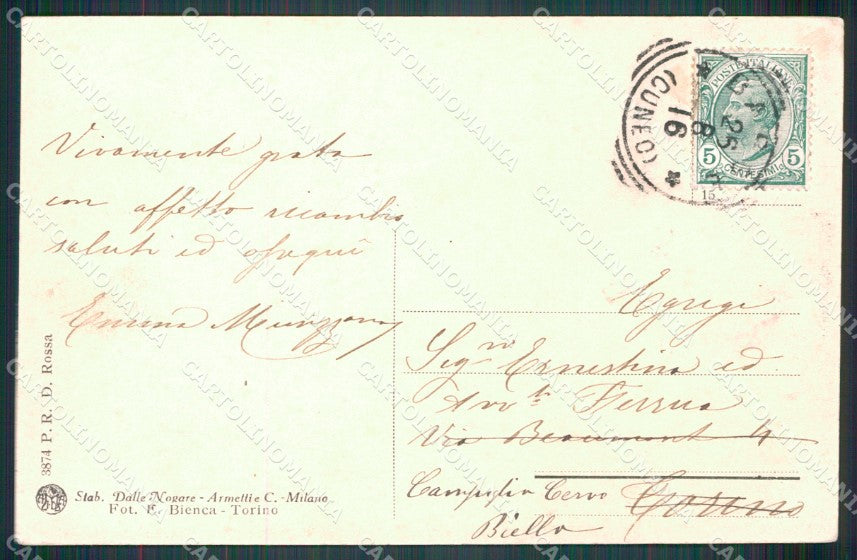 Vivamente grata
con affetto ricambio
saluti ed ossequi
Emma
Egregi
Sigri Ernestina ed
Avvto Ferrua
Via Beaumont 4
Torino
Campiglia Cervo
Biella
POSTE ITALIANE
5 CENTESIMI 5
(CUNEO)
25 8 16
15
3874 P. R. D. Rossa
Stab. Dalle Nogare - Armetti e C. - Milano
Fot. E. Bienca - Torino
CARTOLINOMANIA